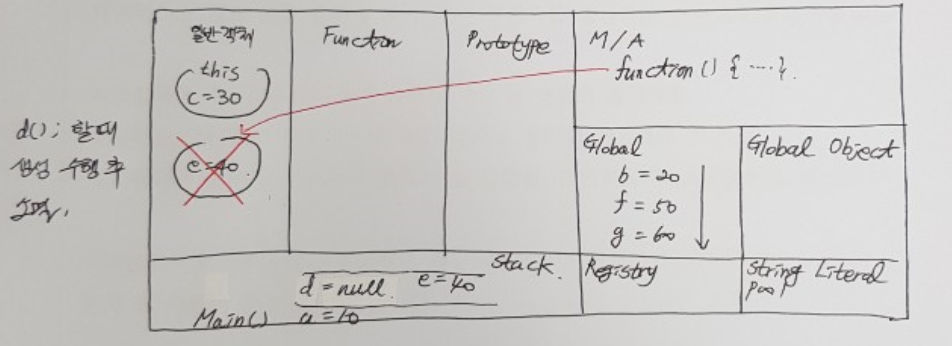 d(); 할때
생성 수행 후
소멸.
일반객체
this
c=30
e=40
Function
Prototype
M/A
function () { .... }.
Global
b = 20
f = 50
g = 60
Global Object
Stack.
d = null. e=40
Main() a=10
Registry
String Literal
pool